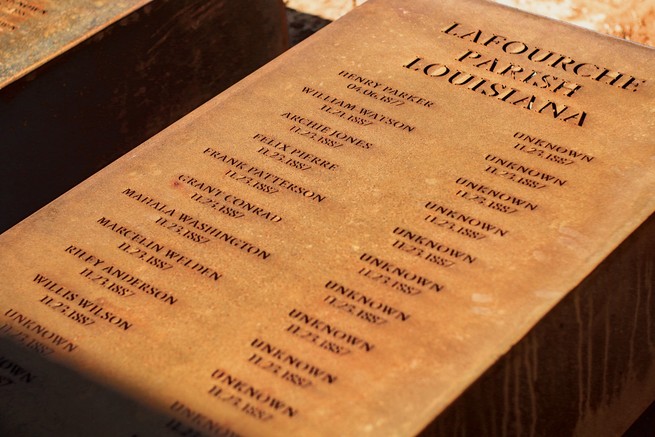 LAFOURCHE
PARISH
LOUISIANA
HENRY PARKER
04.06.1877
WILLIAM WATSON
11.21.1887
ARCHIE JONES
11.23.1887
FELIX PIERRE
11.23.1887
FRANK PATTERSON
11.23.1887
GRANT CONRAD
11.23.1887
MAHALA WASHINGTON
11.23.1887
MARCELIN WELDEN
11.23.1887
RILEY ANDERSON
11.23.1887
WILLIS WILSON
11.23.1887
UNKNOWN
11.23.1887
UNKNOWN
11.23.1887
UNKNOWN
11.23.1887
UNKNOWN
11.23.1887
UNKNOWN
11.23.1887
UNKNOWN
11.23.1887
UNKNOWN
11.23.1887
UNKNOWN
11.23.1887
UNKNOWN
11.23.1887
UNKNOWN
11.23.1887
UNKNOWN
11.23.1887
UNKNOWN
11.23.1887
UNKNOWN